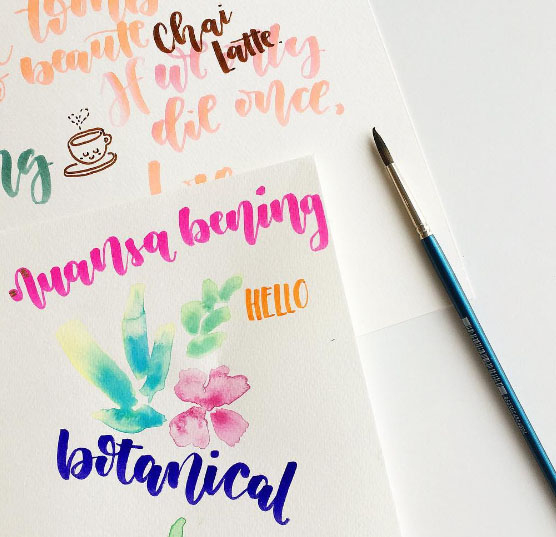 Chai
Latte.
beaute
If we only
die once,
ng
nuansa bening
HELLO
botanical